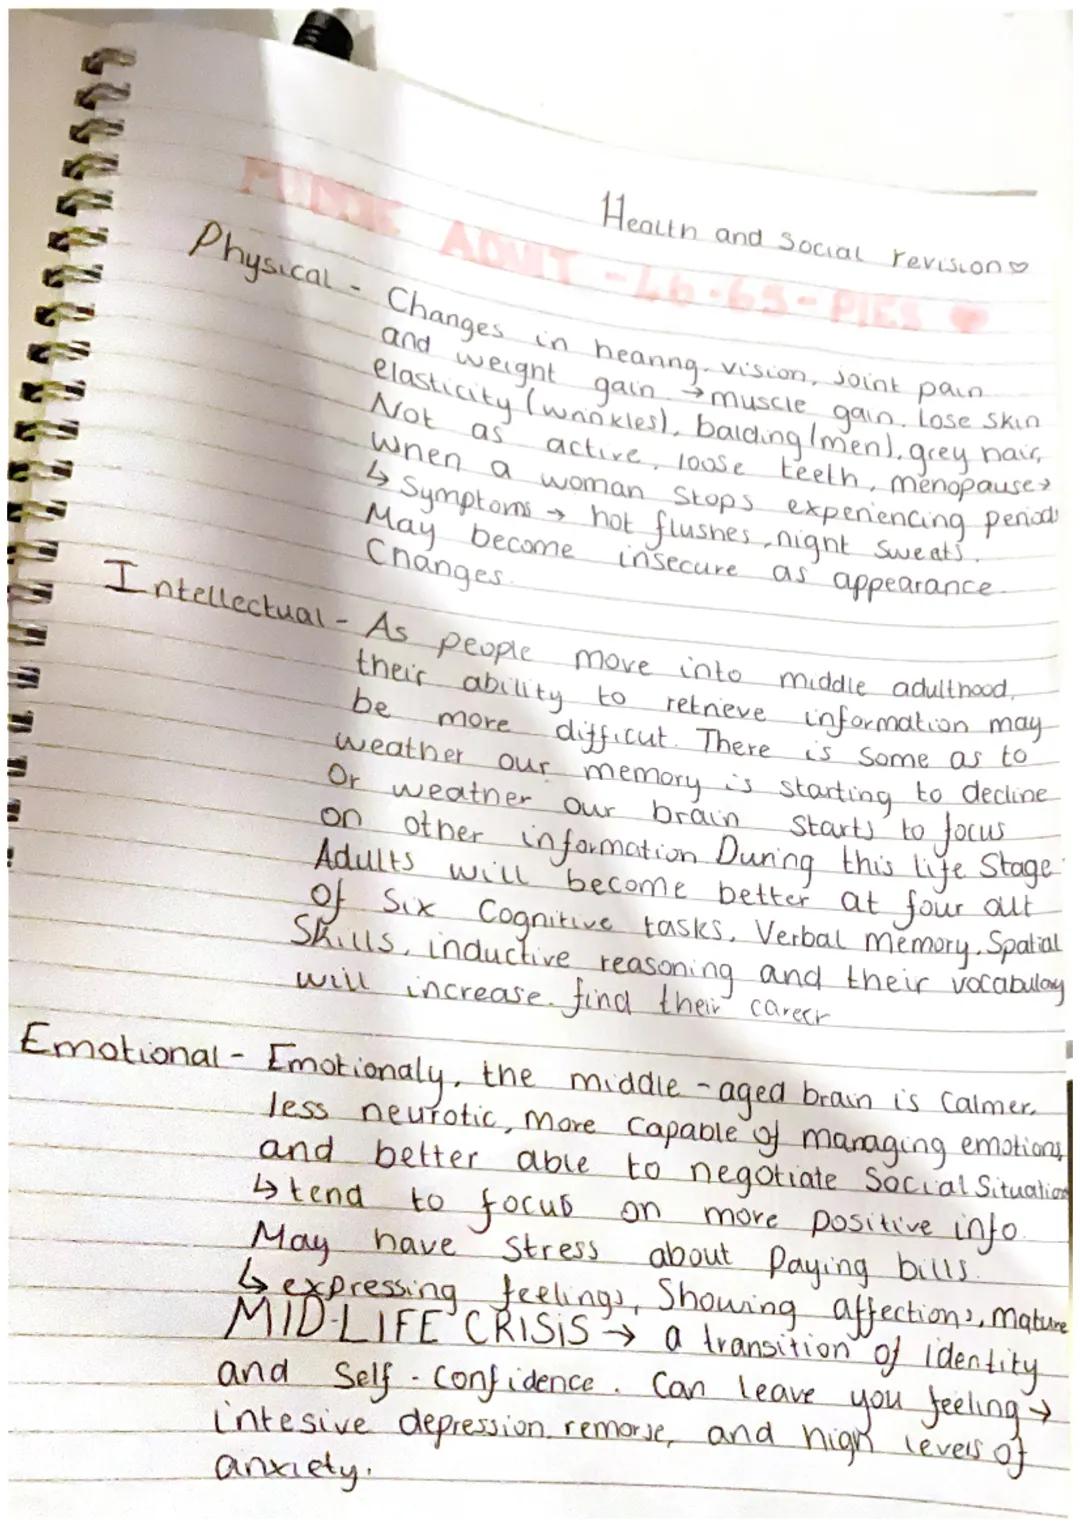 Health and Social revision♡
MIDDLE ADULT - 46-65 - PIES ♥
Physical - Changes in hearing, vision, joint pain
and weight gain → muscle gain. Lose skin
elasticity (wrinkles), balding (men), grey hair,
Not as active, loose teeth, menopause→
when a woman stops experiencing periods
↳ Symptoms → hot flushes, night sweats.
May become insecure as appearance
Changes.
Intellectual - As people move into middle adulthood,
their ability to retrieve information may
be more difficut. There is some as to
weather our memory is starting to decline
Or weather our brain starts to focus
on other information During this life Stage
Adults will become better at four out
of six Cognitive tasks, Verbal memory, Spatial
Skills, inductive reasoning and their vocabulay
will increase. find their career
Emotional - Emotionaly, the middle-aged brain is Calmer.
less neurotic, More Capable of managing emotions,
and better able to negotiate Social Situation
↳ tend to focus on more positive info.
May have Stress about Paying bills.
↳ expressing feelings, Showing affections, Mature
MID-LIFE CRISIS → a transition of identity
and Self-Confidence. Can leave you feeling →
intesive depression, remorse, and high levels of
anxiety.